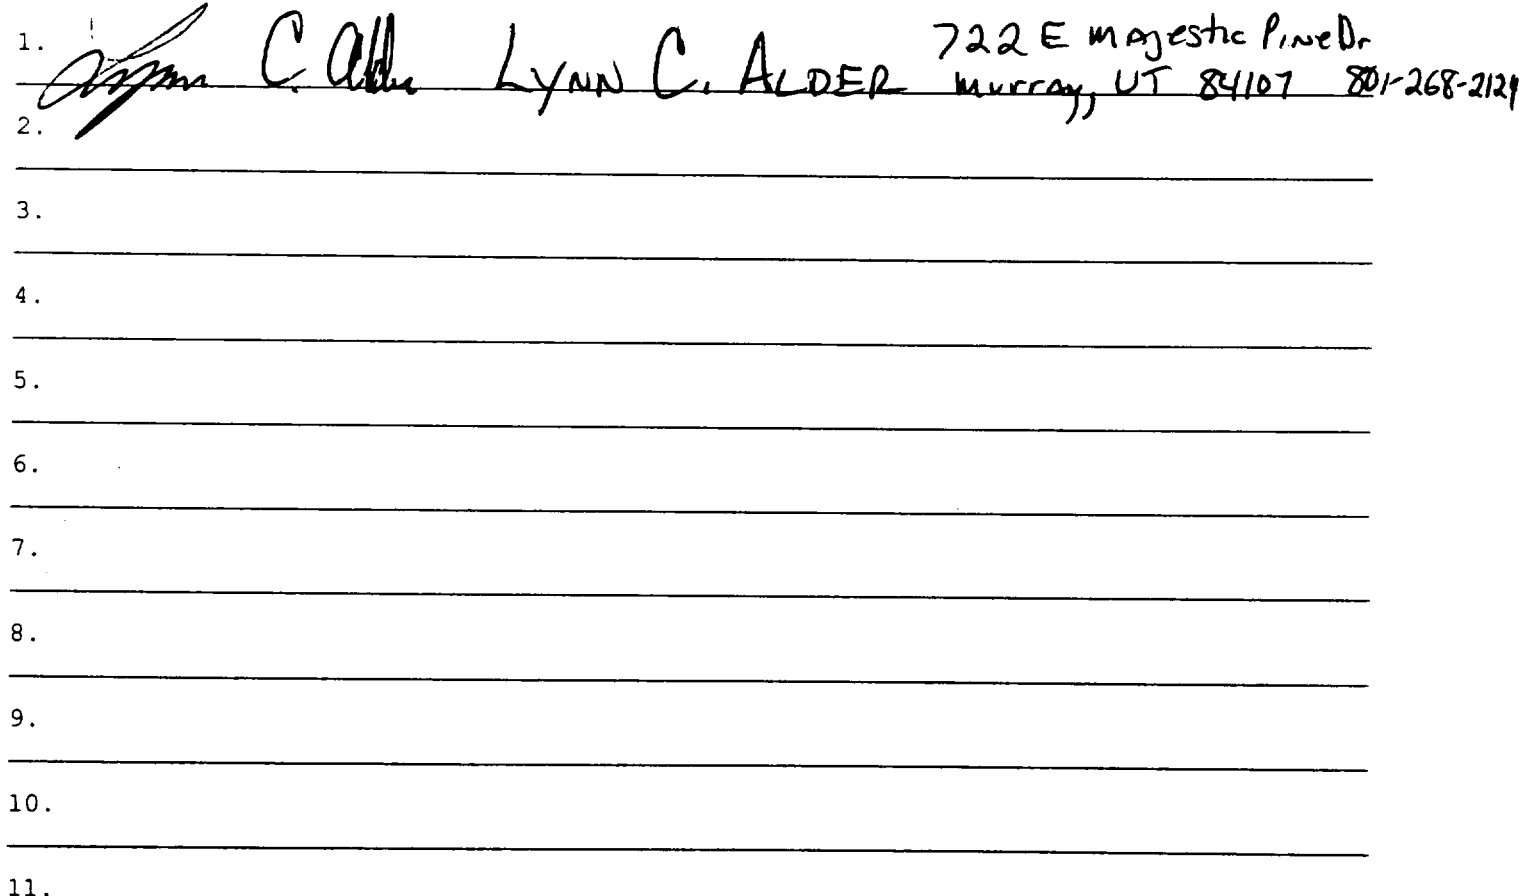 1. Lynn C. Alder LYNN C. ALDER 722 E Majestic Pine Dr
Murray, UT 84107 801-268-2129
2.
3.
4.
5.
6.
7.
8.
9.
10.
11.